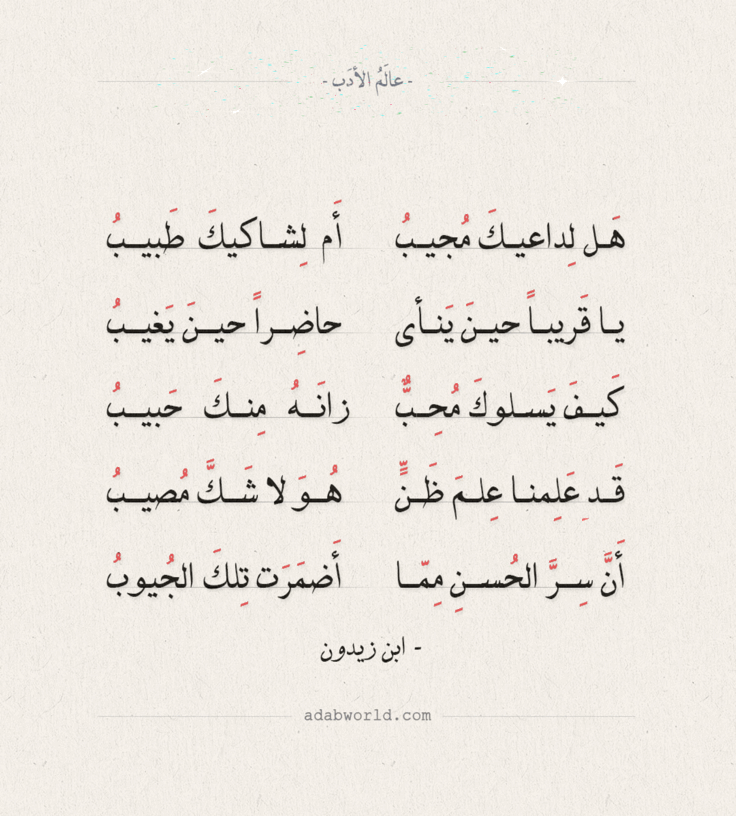 - عالَمُ الأدَب -
هَل لِداعيكَ مُجيبُ أَم لِشاكيكَ طَبيبُ
يا قَريباً حينَ يَنأى حاضِراً حينَ يَغيبُ
كَيفَ يَسلوكَ مُحِبٌّ زانَهُ مِنكَ حَبيبُ
قَد عَلِمنا عِلمَ ظَنٍّ هُوَ لا شَكَّ مُصيبُ
أَنَّ سِرَّ الحُسنِ مِمّا أَضمَرَت تِلكَ الجُيوبُ
- ابن زيدون
adabworld.com